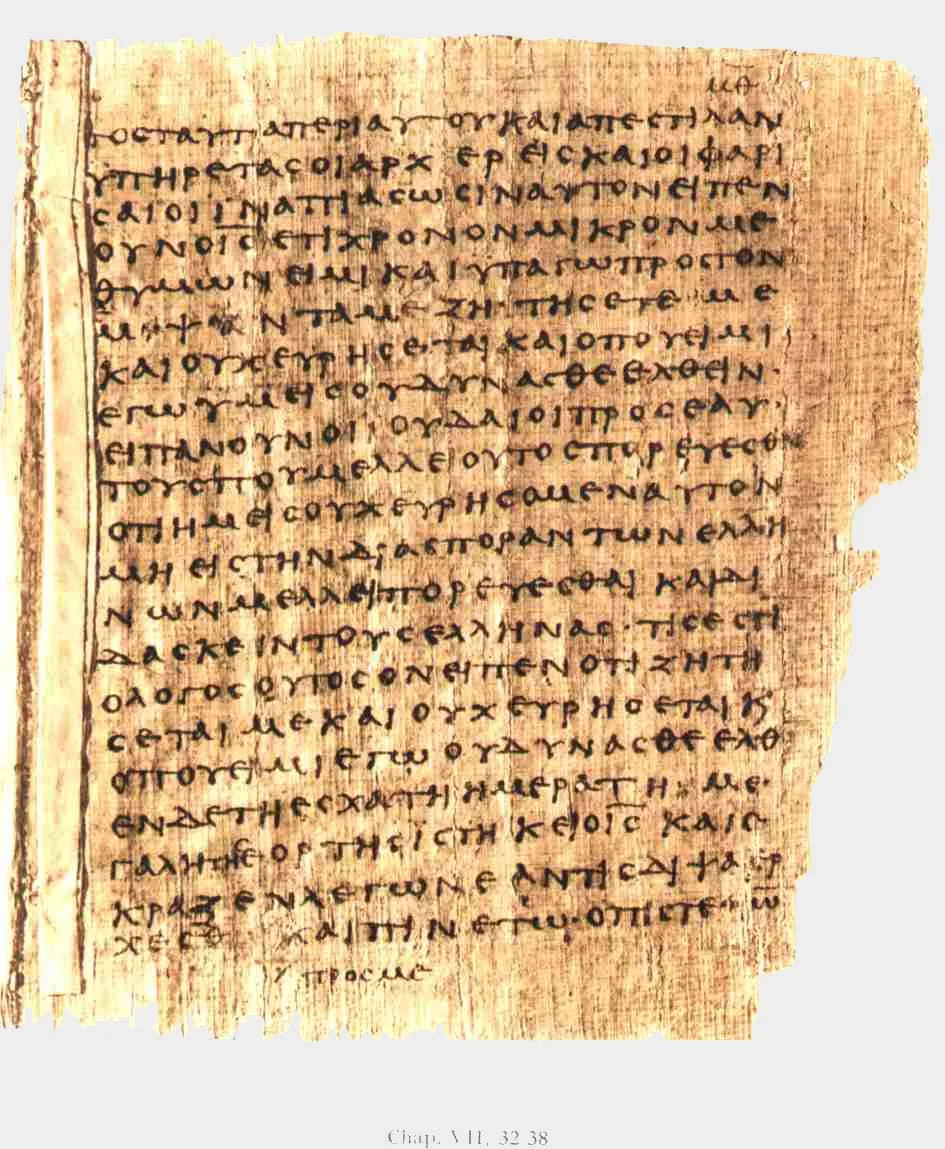 μθ
τοσταυταπεριαυτουκαιαπεστιλαν
υπηρετασοιαρχ ερεισκαιοιφαρι
σαιοιιναπιασωσιναυτονειπεν
ουνοι̅σ̅ετιχρονονμικρονμε
θυμωνειμικαιυπαγωπροστον
με
καιουχευρησεται καιοπουειμι
εγωυμεισουδυνασθεελθειν·
ειπανουνοιιουδαιοιπροσεαυ·
τουσπουμελλειουτοσπορευεσθαι
οτιημεισουχευρησομεναυτον
μηειστηνδιασπορανтωνελλη
νωνμελλειπορευεσθαι καιδι
δασκεintουσελληνασ· τισεστι
ολογοσουτοσονειπενοτιζητη
σεταιμεκαιουχευρησεταικ
οπουειμιεγωουδυνασθεελθ
ενδετηεσχατηημερατη με·
γαλητησεορτησιστηκειοι̅σ̅ καιε
κραζενλεγωνεαντισδιψαερ
χεσθ καιπινετω·οπιστε ω
υ προσμε
Chap. VII, 32-38